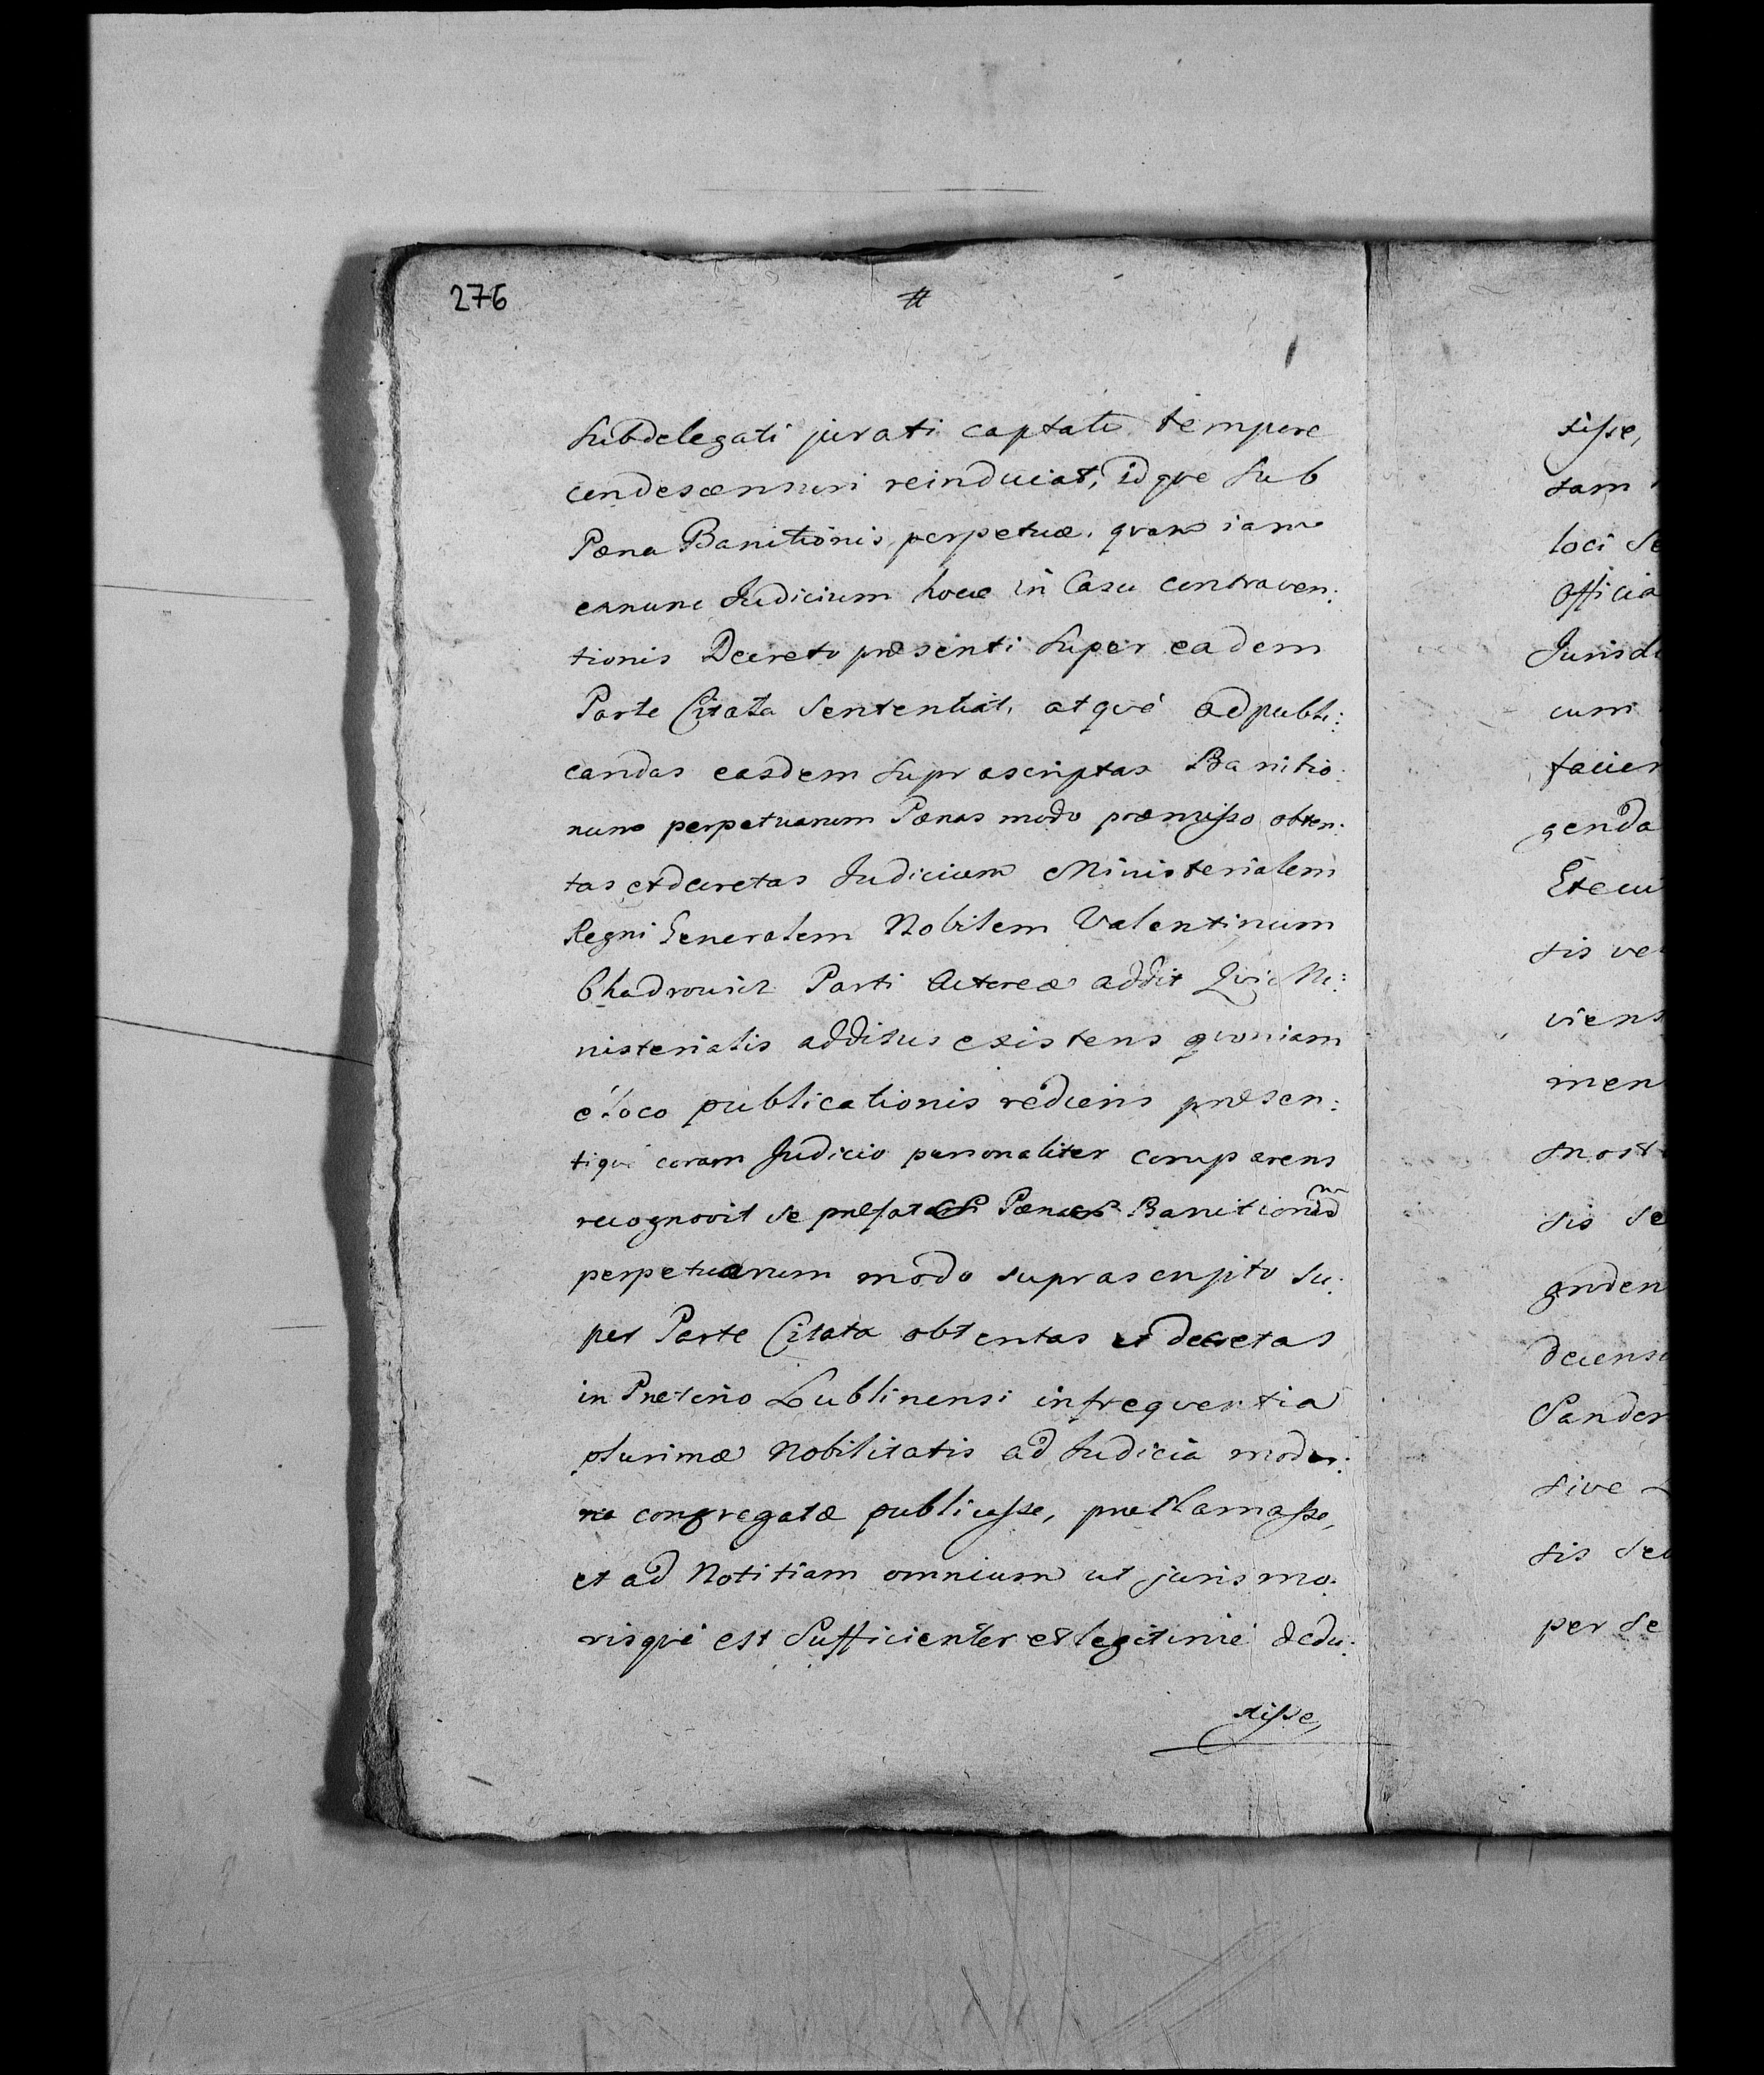 276
#
Subdelegati jurati captato tempore
condescensuri reinducat, idque Sub
Pæna Banitionis perpetuæ. quam iam
exnunc Judicium hocce in Casu contraven:
tionis Decreto præsenti Super eadem
Parte Citata Sententiat, atque ad publi:
candas easdem Suprascriptas Banitio:
num perpetuarum Pænas modo præmisso obten:
tas et decretas Judicium Ministerialem
Regni Generalem Nobilem Valentinum
Chadrowicz Parti Actoreæ addit Qui Mi:
nisterialis additus existens quoniam
é loco publicationis rediens præsen:
tique coram Judicio personaliter comparens
recognovit se præfatas Pænas Banitionum
perpetuarum modo suprascripto Su:
per Parte Citata obtentas et decretas
in Prætorio Lublinensi infrequentia
plurimæ Nobilitatis ad Judicia moder:
na congregatæ publicasse, proclamasse,
et ad Notitiam omnium ut juris mo:
risque est Sufficienter et legitime dedu:
xisse,
xisse,
tam
loci Se
Officia
Jurisdi
cum
facien
genda
Execu
tis ve
viens
men
nost
sis se
gruden
decens
Sandom
sive
tis seu
per se